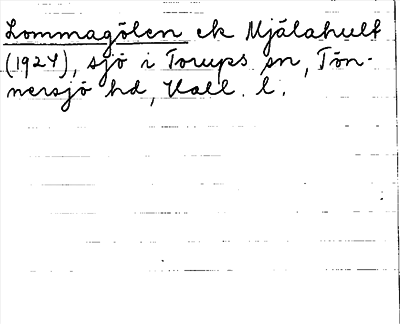 Lommagölen ek Mjälahult
(1924), sjö i Torups sn, Tön-
nersjö hd, Hall. l.